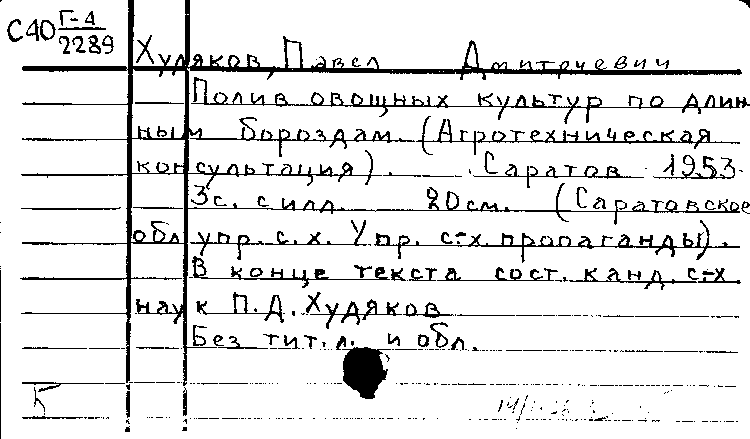 С40 Г-4
2289
Худяков, Павел Дмитриевич
Полив овощных культур по длин
ным бороздам. (Агротехническая
консультация). Саратов 1953.
3с. с илл. 20см. (Саратовское
обл упр. с. х. Упр. с-х. пропаганды).
В конце текста сост. канд. с-х
наук П. Д. Худяков
Без тит. л. и обл.
Б